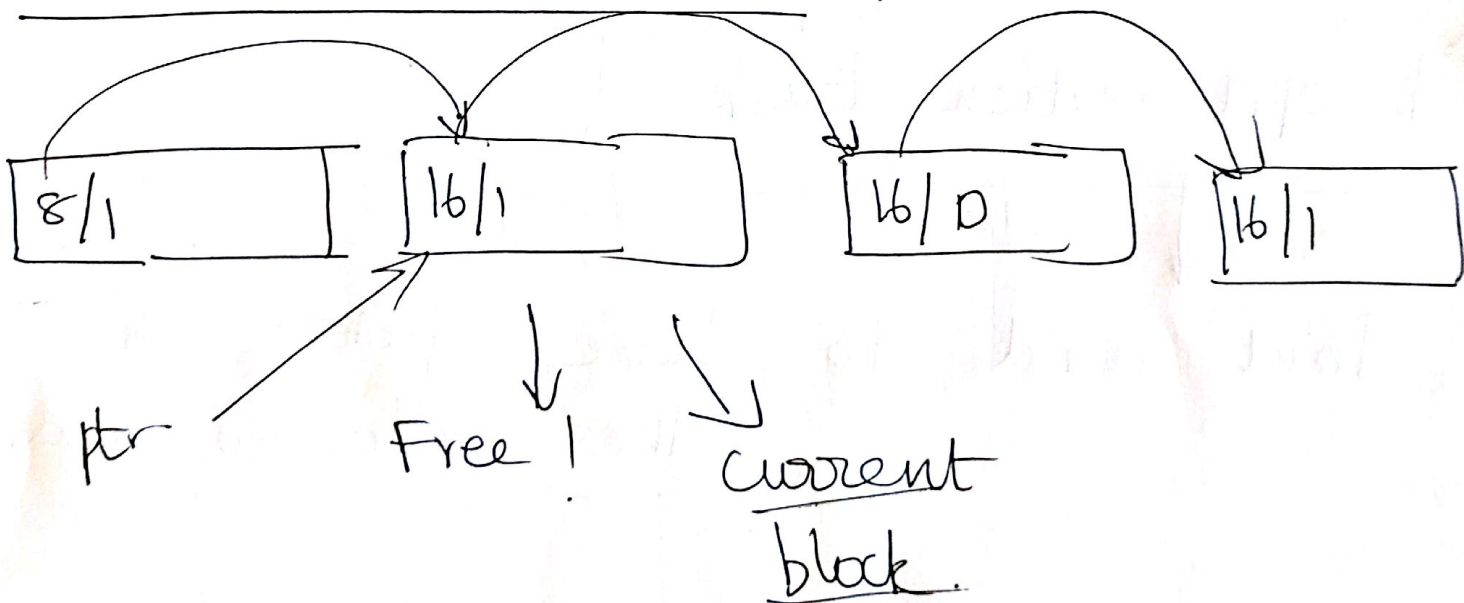 8/1 16/1 16/0 16/1
ptr Free! current
block.